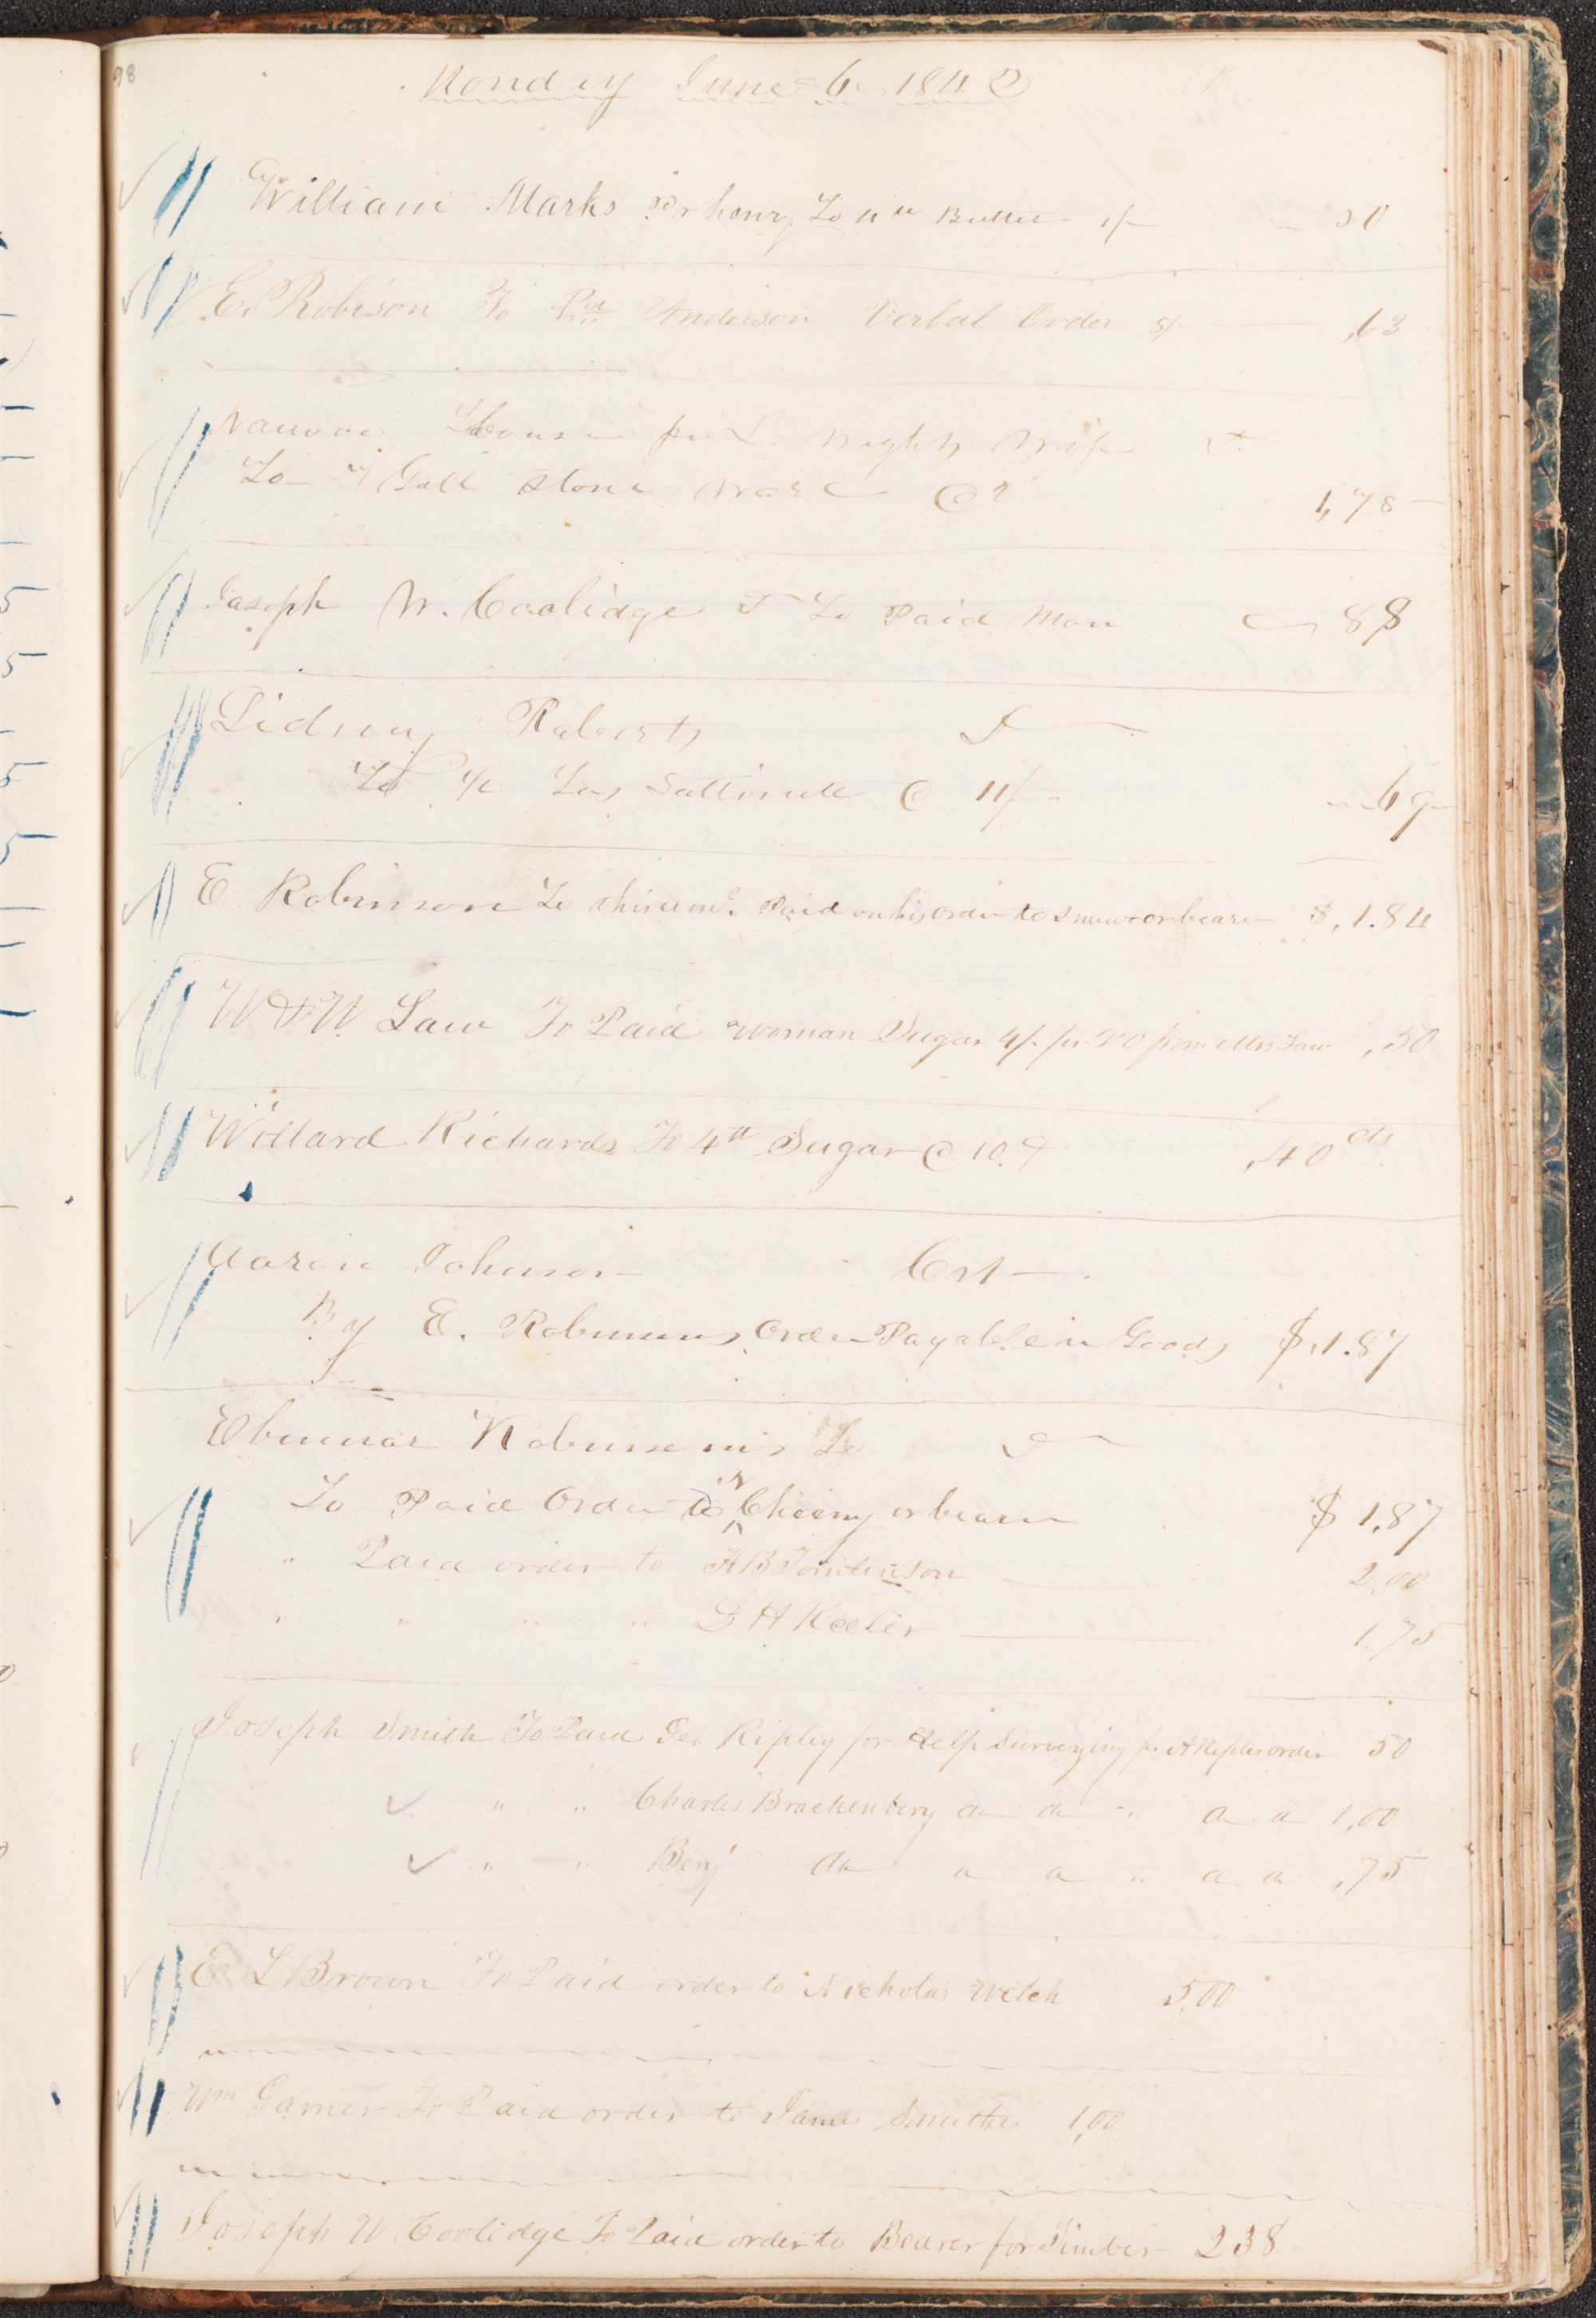 98
Monday June 6 1842
William Marks Dr To 4 tt Butter 1/- 50
E. Robison To Pd Anderson Verbal Order 5/- ,63
Nauvoo House pr L. Wights Wife Dr
To 7 Gall Stone Ware @ 2/ 1,75
Joseph W. Coolidge Dr To Paid Man 88
Sidney Roberts Dr
To 1/2 Yds Sattinett @ 11/- 69
E Robinson To this amt. Paid on his order to Snow or bearer $,1.84
W & W. Law To Paid Woman Sugar 4/- pr V O from Mrs Law ,50
Willard Richards To 4 tt Sugar @ 10. ¢ ,40 cts
Aaron Johnson Crt
By E. Robinsons Order Payable in Goods $,1.87
Ebenezer Robinson Dr
To Paid Order to N Cheeny or bearer $ 1.87
" Paid order to A B Tomlinson 2,00
" " " " G A Keeler 1.75
Joseph Smith To Paid Geo Ripley for Help Surveying pr A Ripleys order 50
" " Charles Brackenbery do do " do do 1,00
" " Benj do do do " do do ,75
E L Brown To Paid order to Nicholas Welch 5,00
Wm Garner To Paid order to James Smithes 1,00
Joseph W Coolidge To Paid order to Bearer for Timber 238